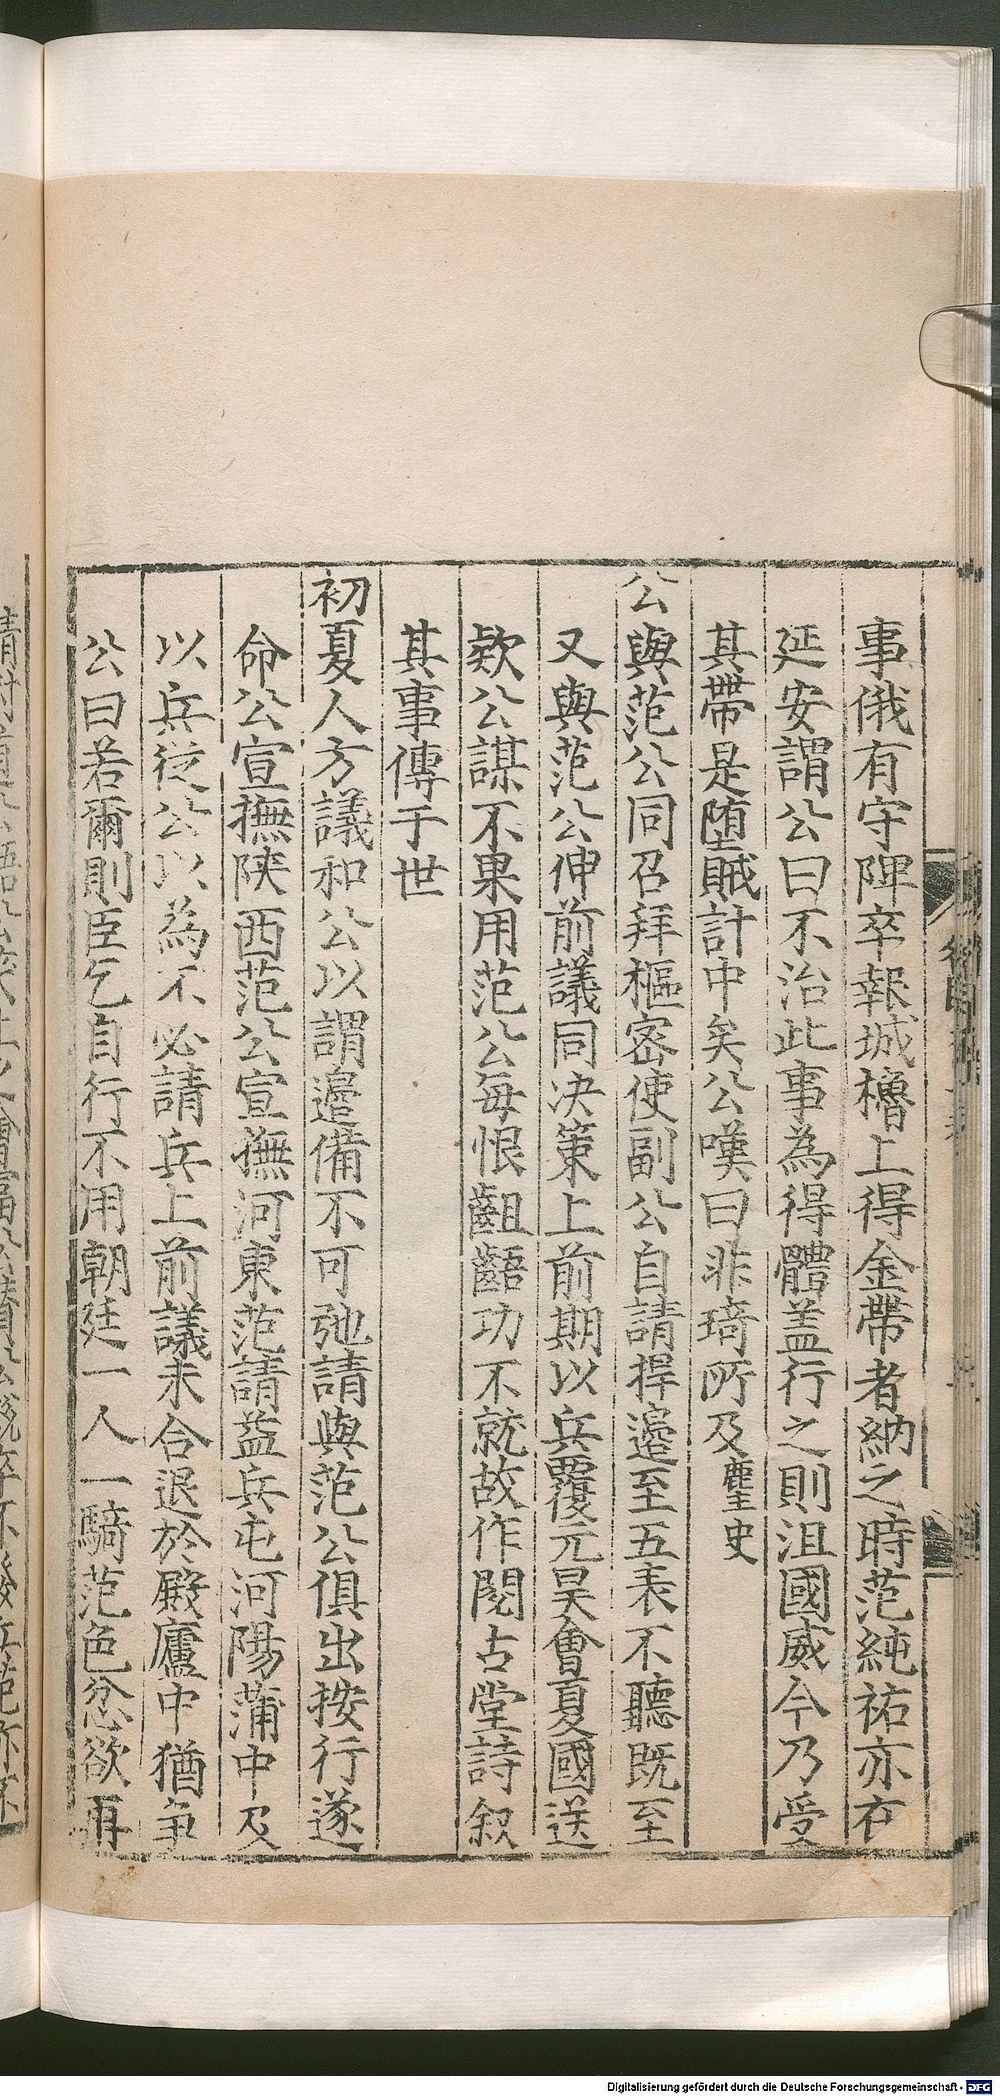 事俄有守陴卒報城櫓上得金帶者納之時范純祐亦在
延安謂公曰不治此事為得體盖行之則沮國威今乃受
其帶是墮賊計中矣公嘆曰非琦所及麈史
公與范公同召拜樞宻使副公自請捍邉至五表不聽既至
又與范公伸前議同决策上前期以兵覆元昊會夏國送
欵公謀不果用范公每恨齟齬功不就故作閱古堂詩叙
其事傳于世
初夏人方議和公以謂邉備不可弛請與范公俱出按行遂
命公宣撫陝西范公宣撫河東范請益兵屯河陽蒲中及
以兵從公以為不必請兵上前議未合退於殿廬中猶争
公曰若爾則臣乞自行不用朝廷一人一騎范色忿欲再
Digitalisierung gefördert durch die Deutsche Forschungsgemeinschaft - DFG